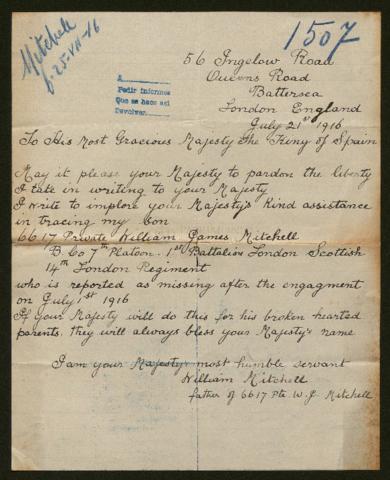 1507
Mitchell
f. 25-VII-16
A
Pedir informes
Que se hace asi
Devolver.
56 Ingelow Road
Queens Road
Battersea
London England
July 21st 1916
To His Most Gracious Majesty The King of Spain
May it please your Majesty to pardon the liberty
I take in writing to your Majesty
I write to implore your Majesty's kind assistance
in tracing my son
6617 Private William James Mitchell
B. Co 7th Platoon. 1st Battalion London Scottish
14th London Regiment
who is reported as missing after the engagment
on July 1st 1916
If your Majesty will do this for his broken hearted
parents. they will always bless your Majesty's name
I am your Majesty's most humble servant
William Mitchell
father of 6617 Pte W. J. Mitchell